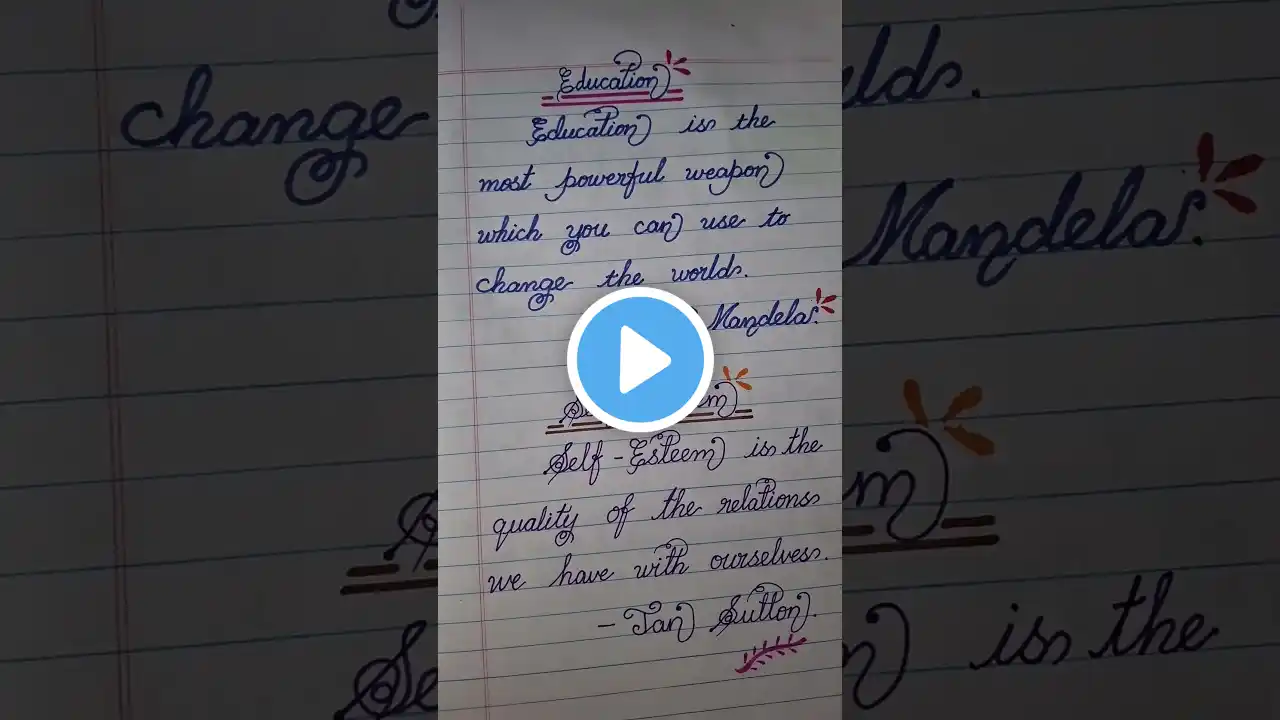 Education
Education is the
most powerful weapon
which you can use to
change the worlds.
Mandela.
Self-Esteem is the
quality of the relations
we have with ourselves.
- Jan Sutton.